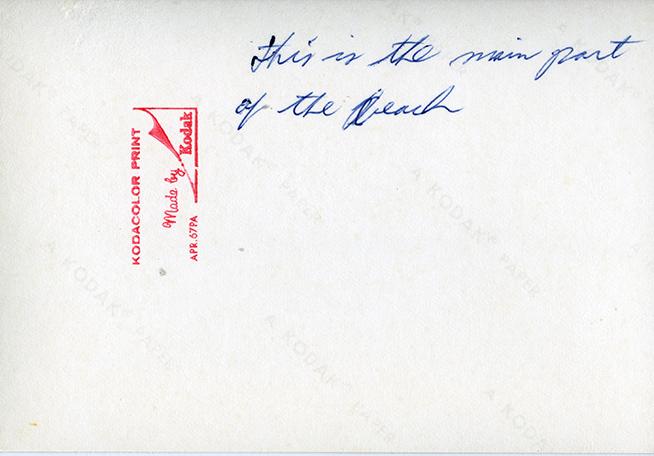 This is the main part
of the Beach
KODACOLOR PRINT
Made by
Kodak
APR.67PA
A KODAK® PAPER
A KODAK® PAPER
A KODAK® PAPER
A KODAK® PAPER